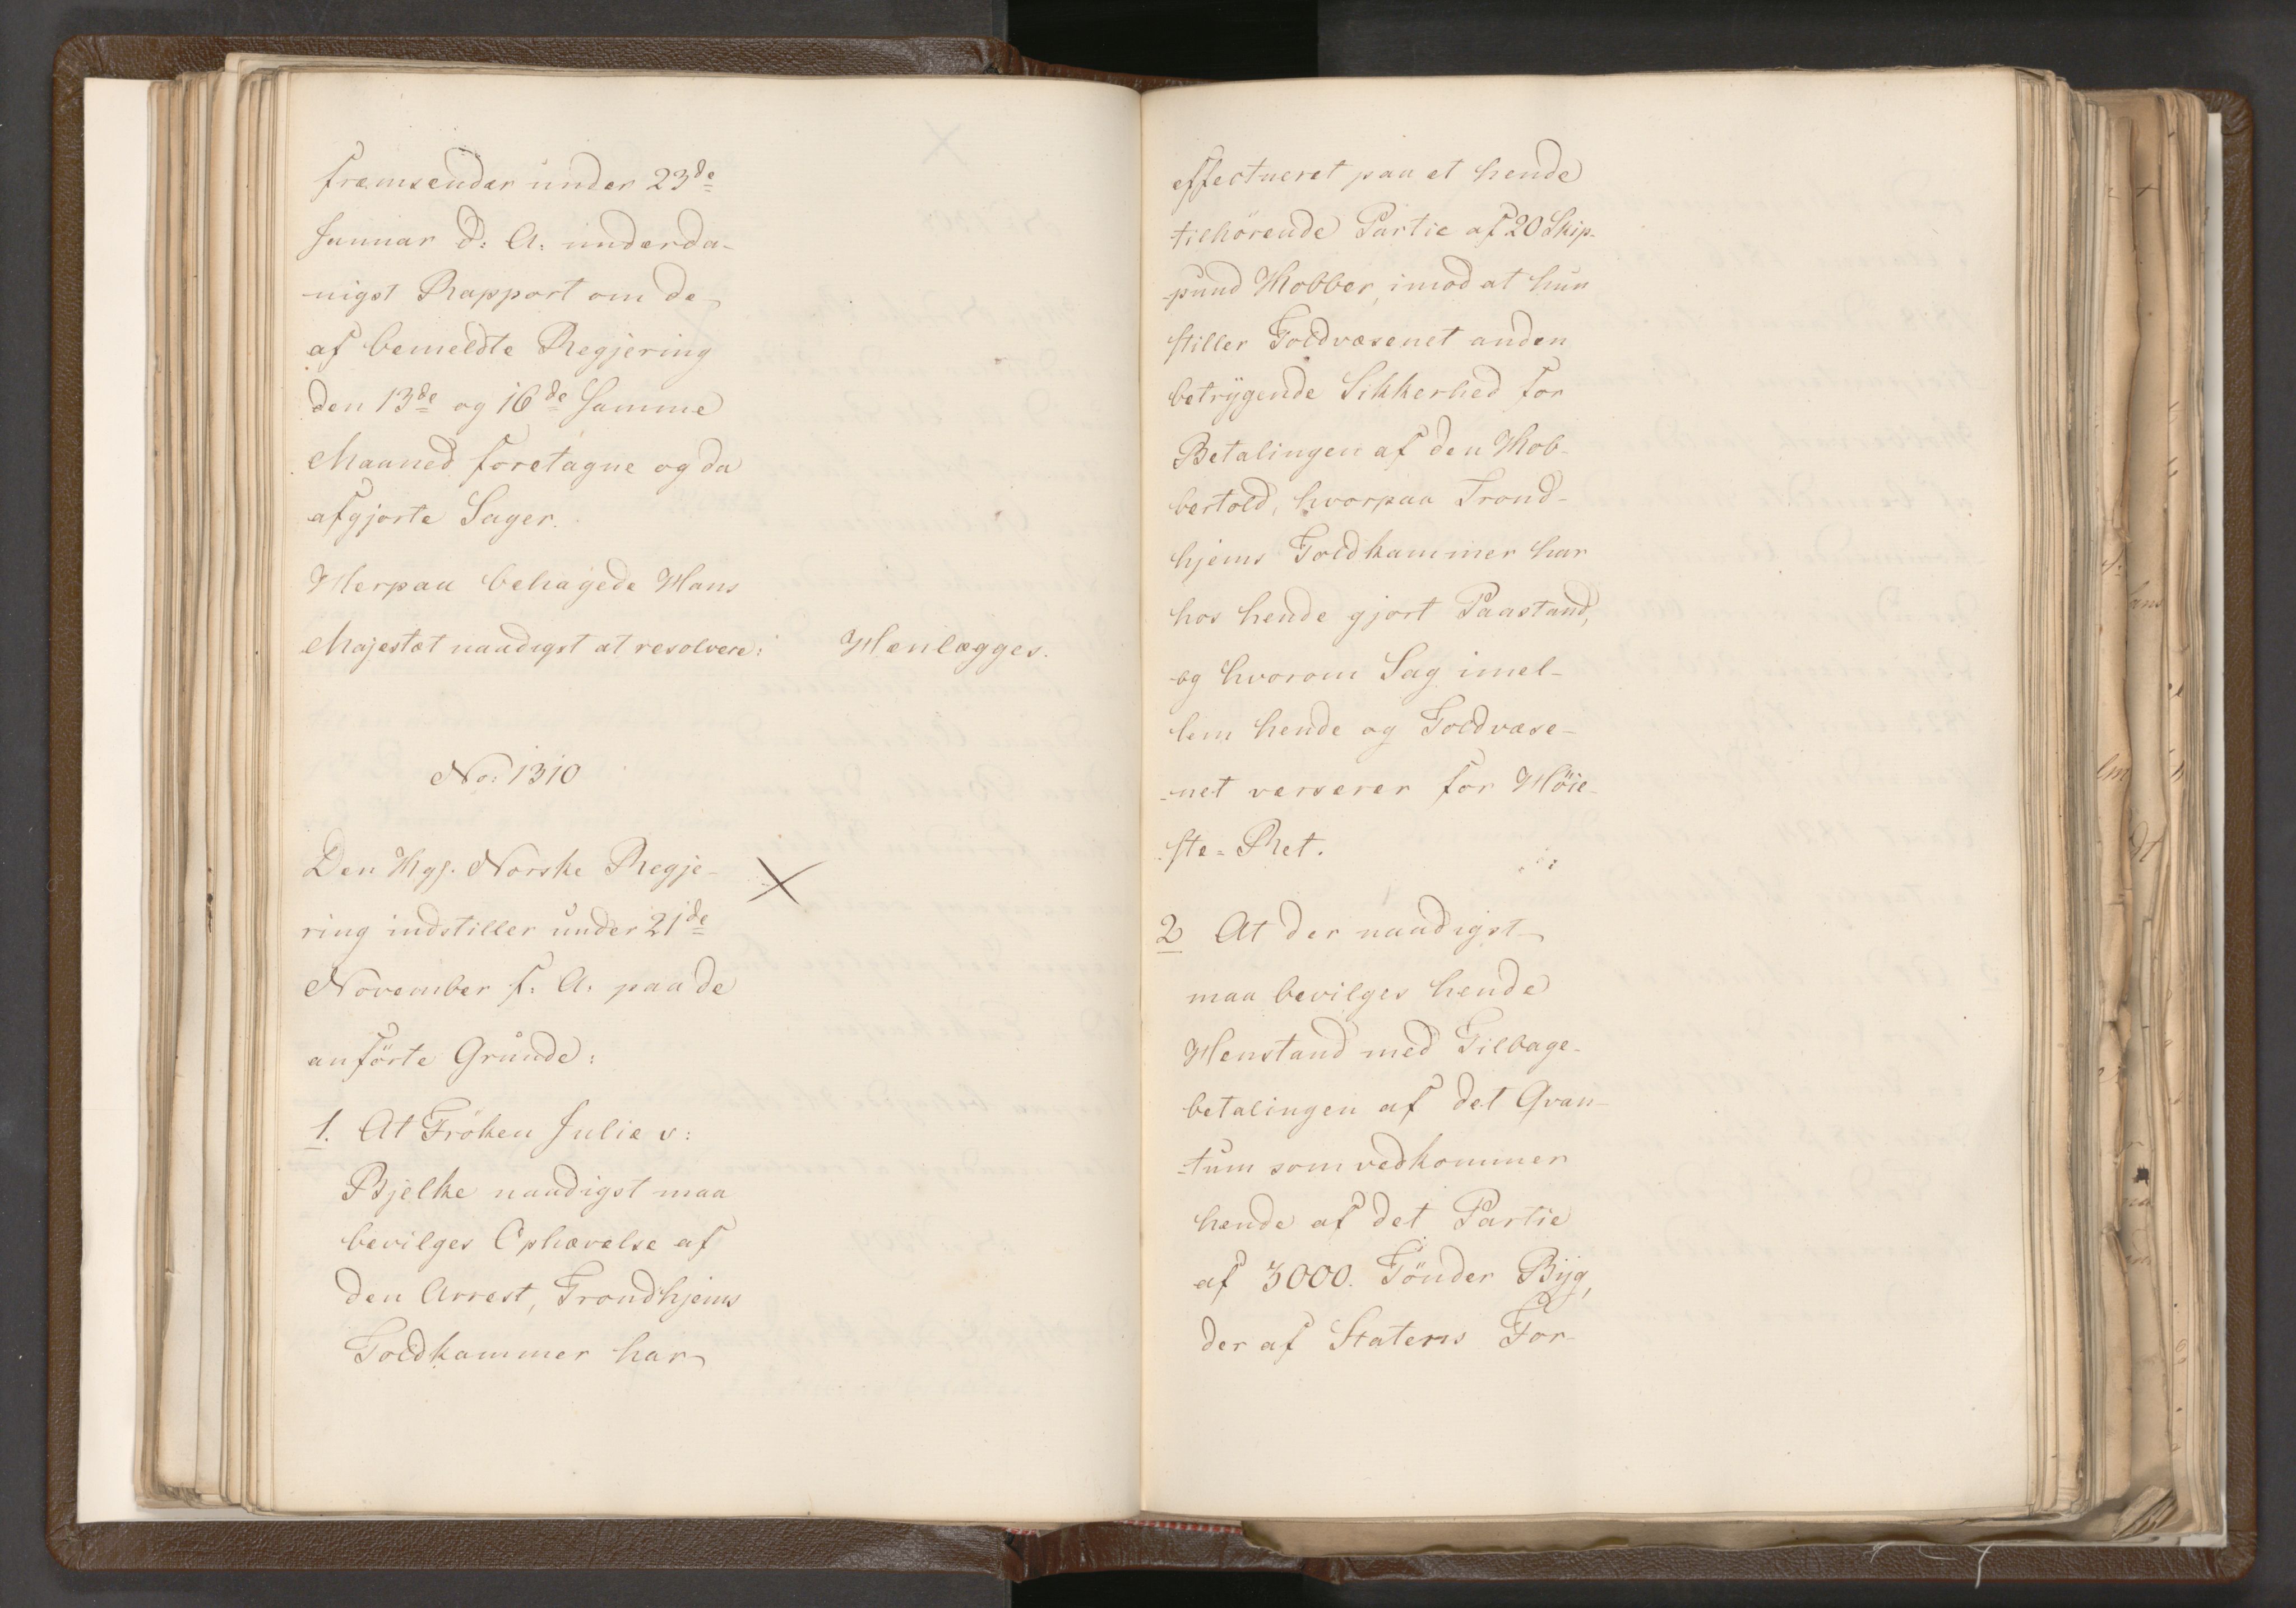 fremsender under 23de
Januar d: A: underda-
nigst Rapport om de
af bemeldte Regjering
den 13de og 16de samme
Maaned foretagne og da
afgjorte Sager.
Herpaa behagede Hans
Majestæt naadigst at resolvere:
Henlægges.
No: 1310
Den Kgl. Norske Regje-
ring indstiller under 21de
November f: A: paa de
anförte Grunde:
1. At Fröken Julie v:
Bjelke naadigst maa
bevilges Ophævelse af
den Arrest, Trondhjems
Toldkammer har
effectueret paa et hende
tilhörende Partie af 20 Skip-
pund Kobber, imod at hun
stiller Toldvæsenet anden
betryggende Sikkerhed for
Betalingen af den Kob-
bertold, hvorpaa Trond-
hjems Toldkammer har
hos hende gjort Paastand,
og hvorom Sag imel-
lem hende og Toldvæse-
-net verserer for Höie-
ste-Ret.
2 At der naadigst
maa bevilges hende
Henstand med Tilbage-
betalingen af det Qvan-
-tum som vedkommer
hende af det Partie
af 3000. Tönder Byg,
der af Statens For-